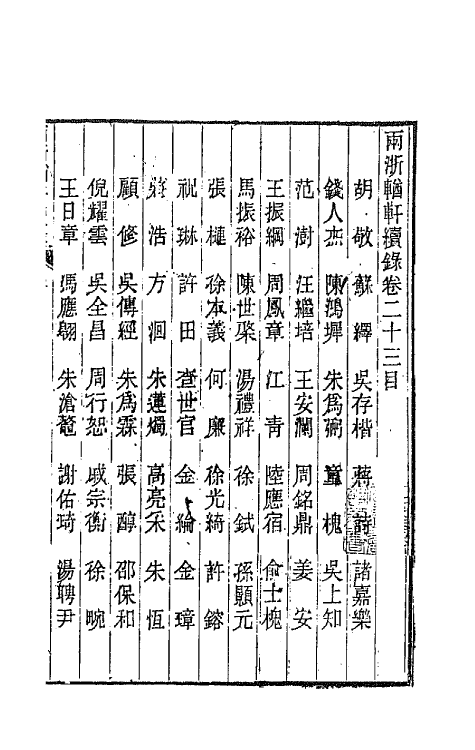 兩浙輶軒續錄卷二十三目
胡敬 蘇繹 吳存楷 蔣詩 諸嘉樂
錢人杰 陳鴻墀 朱爲弼 童槐 吳上知
范澍 汪繼培 王安瀾 周銘鼎 姜安
王振綱 周鳳章 江青 陸應宿 俞士槐
馬振裕 陳世棨 湯禮祥 徐鉽 孫顥元
張槤 徐本義 何廉 徐光綺 許鎔
祝琳 許田 查世官 金綸 金璋
蔣浩 方洄 朱蓮燭 高亮采 朱恆
顧修 吳傳經 朱爲霖 張醇 邵保和
倪耀雲 吳全昌 周行恕 戚宗衡 徐畹
王日章 馮應翺 朱滄鼇 謝佑琦 湯聘尹